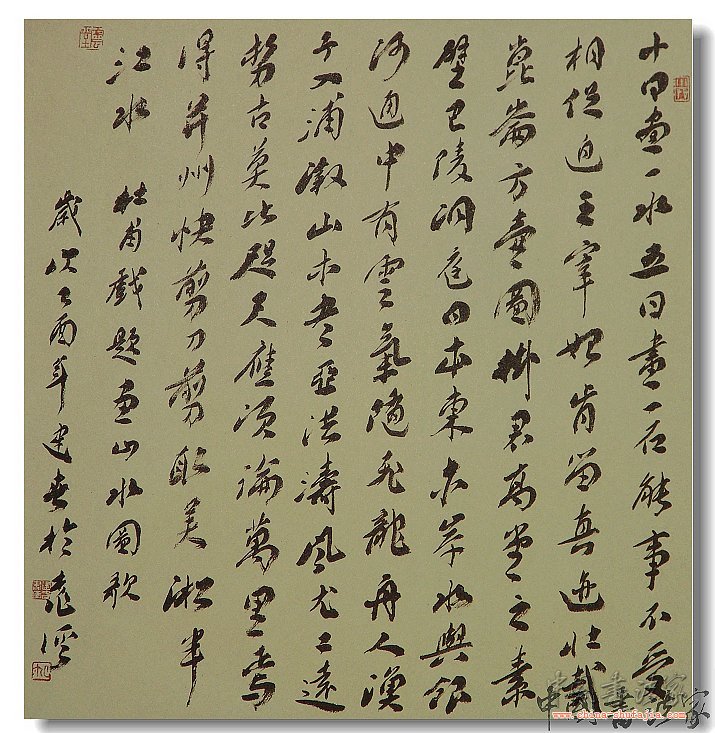 十日畫一水五日畫一石能事不受
相促迫王宰始肯留真迹壮哉
崑崙方壺圖掛君高堂之素
壁巴陵洞庭日本東赤岸水與銀
河通中有雲氣随飛龍舟人漁
子入浦漵山木老亞洪濤風尤工遠
勢古莫比咫尺應須論萬里焉
得并州快剪刀剪取吴淞半
江水 杜甫戲題畫山水圖歌
歲次乙酉年建春於
中國書法家
www.china-shufajia.com